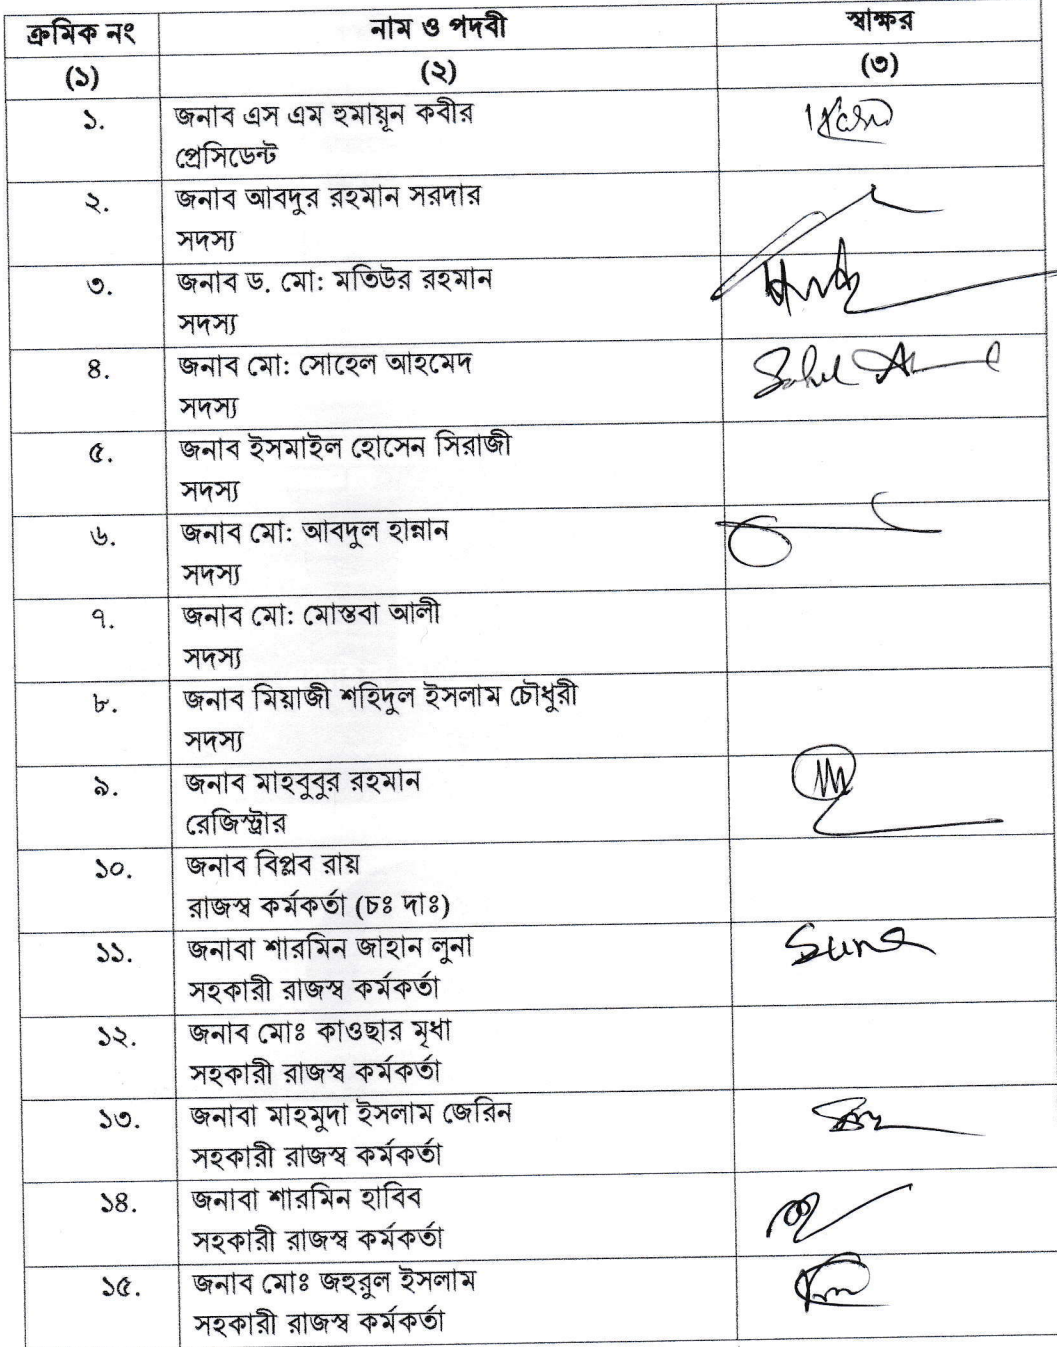 ক্রমিক নং নাম ও পদবী স্বাক্ষর
(১) (২) (৩)
১. জনাব এস এম হুমায়ূন কবীর
প্রেসিডেন্ট
২. জনাব আবদুর রহমান সরদার
সদস্য
৩. জনাব ড. মো: মতিউর রহমান
সদস্য
৪. জনাব মো: সোহেল আহমেদ
সদস্য
৫. জনাব ইসমাইল হোসেন সিরাজী
সদস্য
৬. জনাব মো: আবদুল হান্নান
সদস্য
৭. জনাব মো: মোস্তবা আলী
সদস্য
৮. জনাব মিয়াজী শহিদুল ইসলাম চৌধুরী
সদস্য
৯. জনাব মাহবুবুর রহমান
রেজিস্ট্রার
১০. জনাব বিপ্লব রায়
রাজস্ব কর্মকর্তা (চঃ দাঃ)
১১. জনাবা শারমিন জাহান লুনা
সহকারী রাজস্ব কর্মকর্তা
১২. জনাব মোঃ কাওছার মৃধা
সহকারী রাজস্ব কর্মকর্তা
১৩. জনাবা মাহমুদা ইসলাম জেরিন
সহকারী রাজস্ব কর্মকর্তা
১৪. জনাবা শারমিন হাবিব
সহকারী রাজস্ব কর্মকর্তা
১৫. জনাব মোঃ জহুরুল ইসলাম
সহকারী রাজস্ব কর্মকর্তা